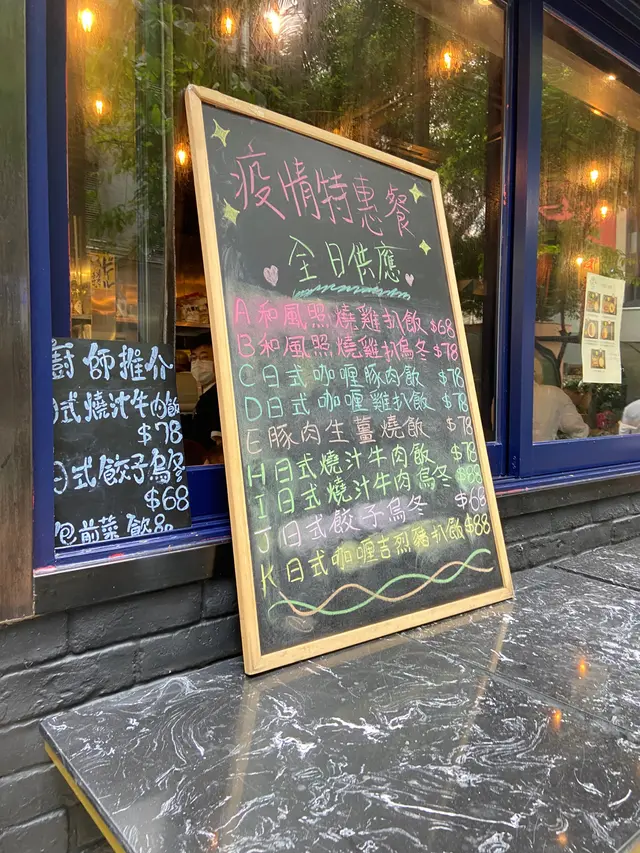 疫情特惠餐
全日供應
A和風照燒雞扒飯 $68
B和風照燒雞扒烏冬 $78
C日式咖喱豚肉飯 $78
D日式咖喱雞扒飯 $78
E豚肉生薑燒飯 $78
H日式燒汁牛肉飯 $78
I日式燒汁牛肉烏冬 $88
J日式餃子烏冬 $68
K日式咖喱吉烈豬扒飯 $88
廚師推介
式燒汁牛肉飯
$78
日式餃子烏冬
$68
包前菜飲品